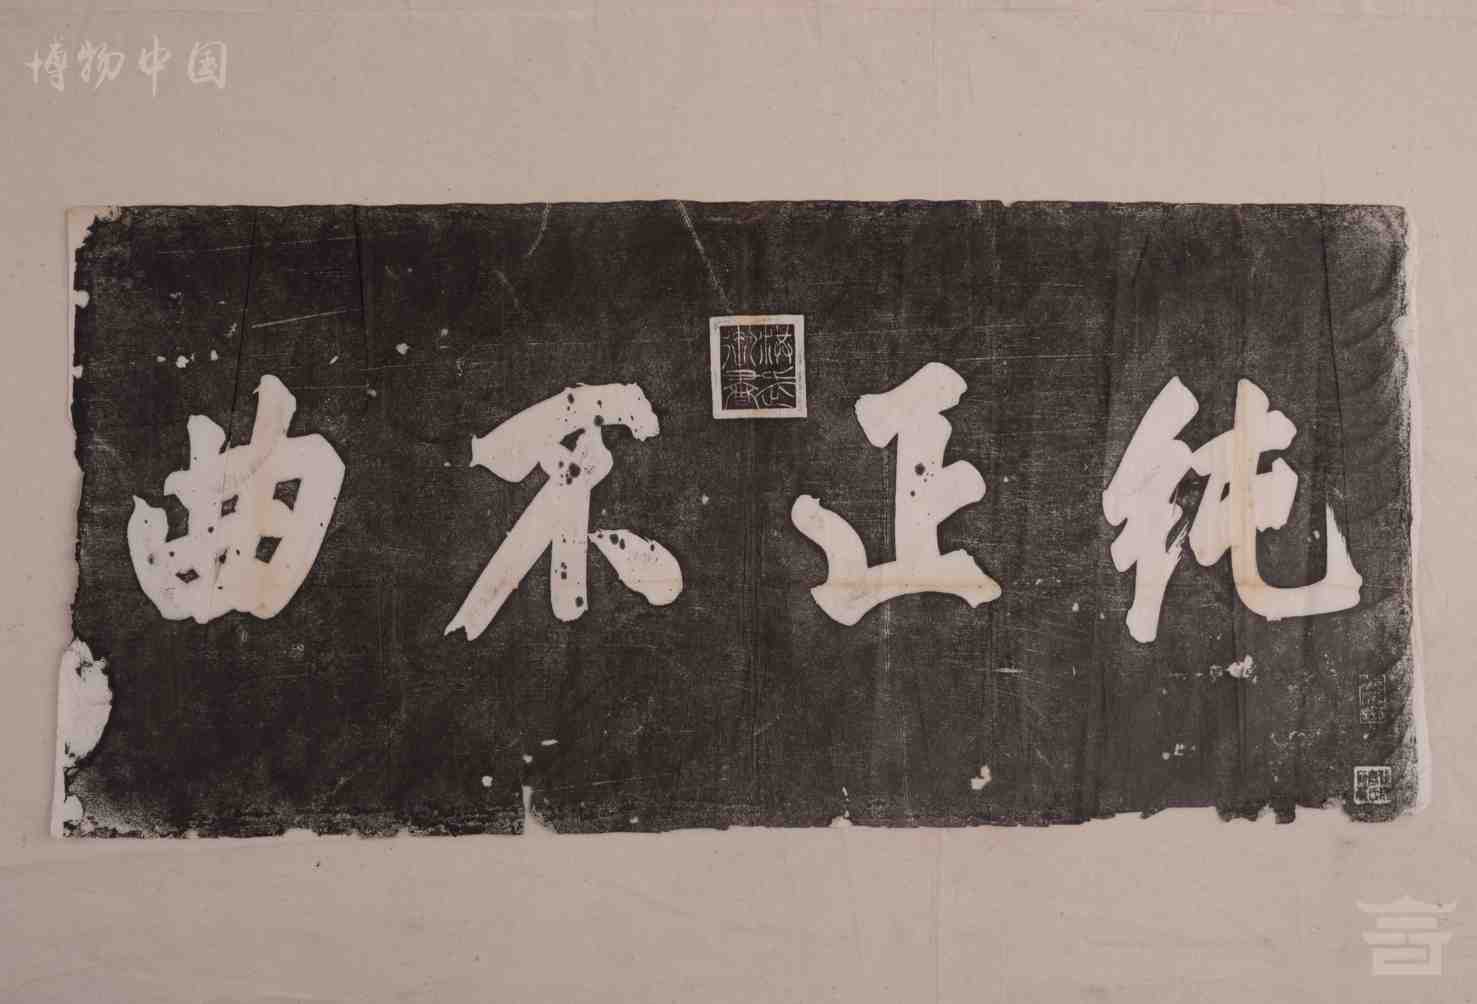 博物中国
纯正不曲